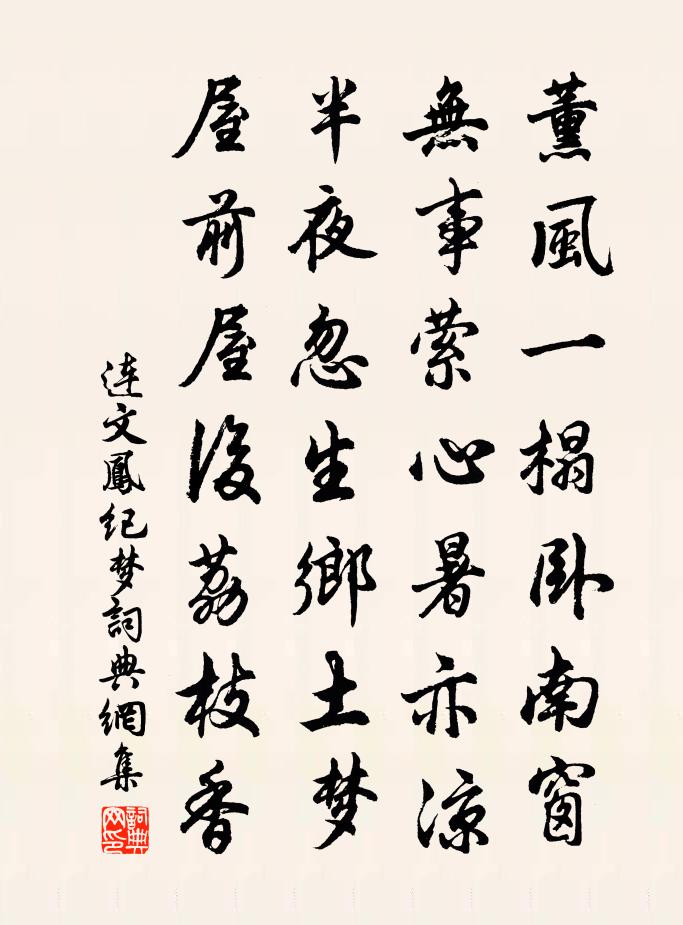 薰風一榻卧南窗
無事縈心暑亦涼
半夜忽生鄉土梦
屋前屋後荔枝香
連文鳳紀梦詞典網集
詞典网印